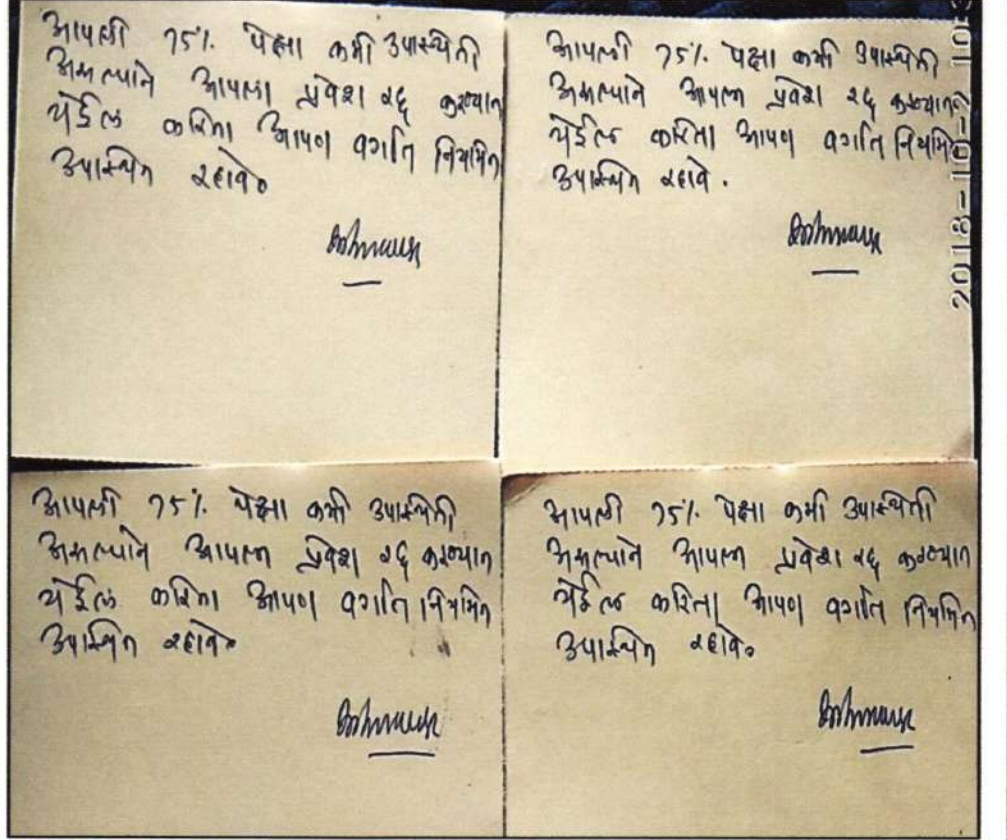 आपली 75% पेक्षा कमी उपास्थिती
असल्याने आपला प्रवेश रद्द करण्यात
येईल करिता आपण वर्गात नियमित
उपास्थित रहावे.
आपली 75% पेक्षा कमी उपास्थिती
असल्याने आपला प्रवेश रद्द करण्यात
येईल करिता आपण वर्गात नियमित
उपास्थित रहावे.
2018-10-10
आपली 75% पेक्षा कमी उपास्थिती
असल्याने आपला प्रवेश रद्द करण्यात
येईल करिता आपण वर्गात नियमित
उपास्थित रहावे.
आपली 75% पेक्षा कमी उपास्थिती
असल्याने आपला प्रवेश रद्द करण्यात
येईल करिता आपण वर्गात नियमित
उपास्थित रहावे.